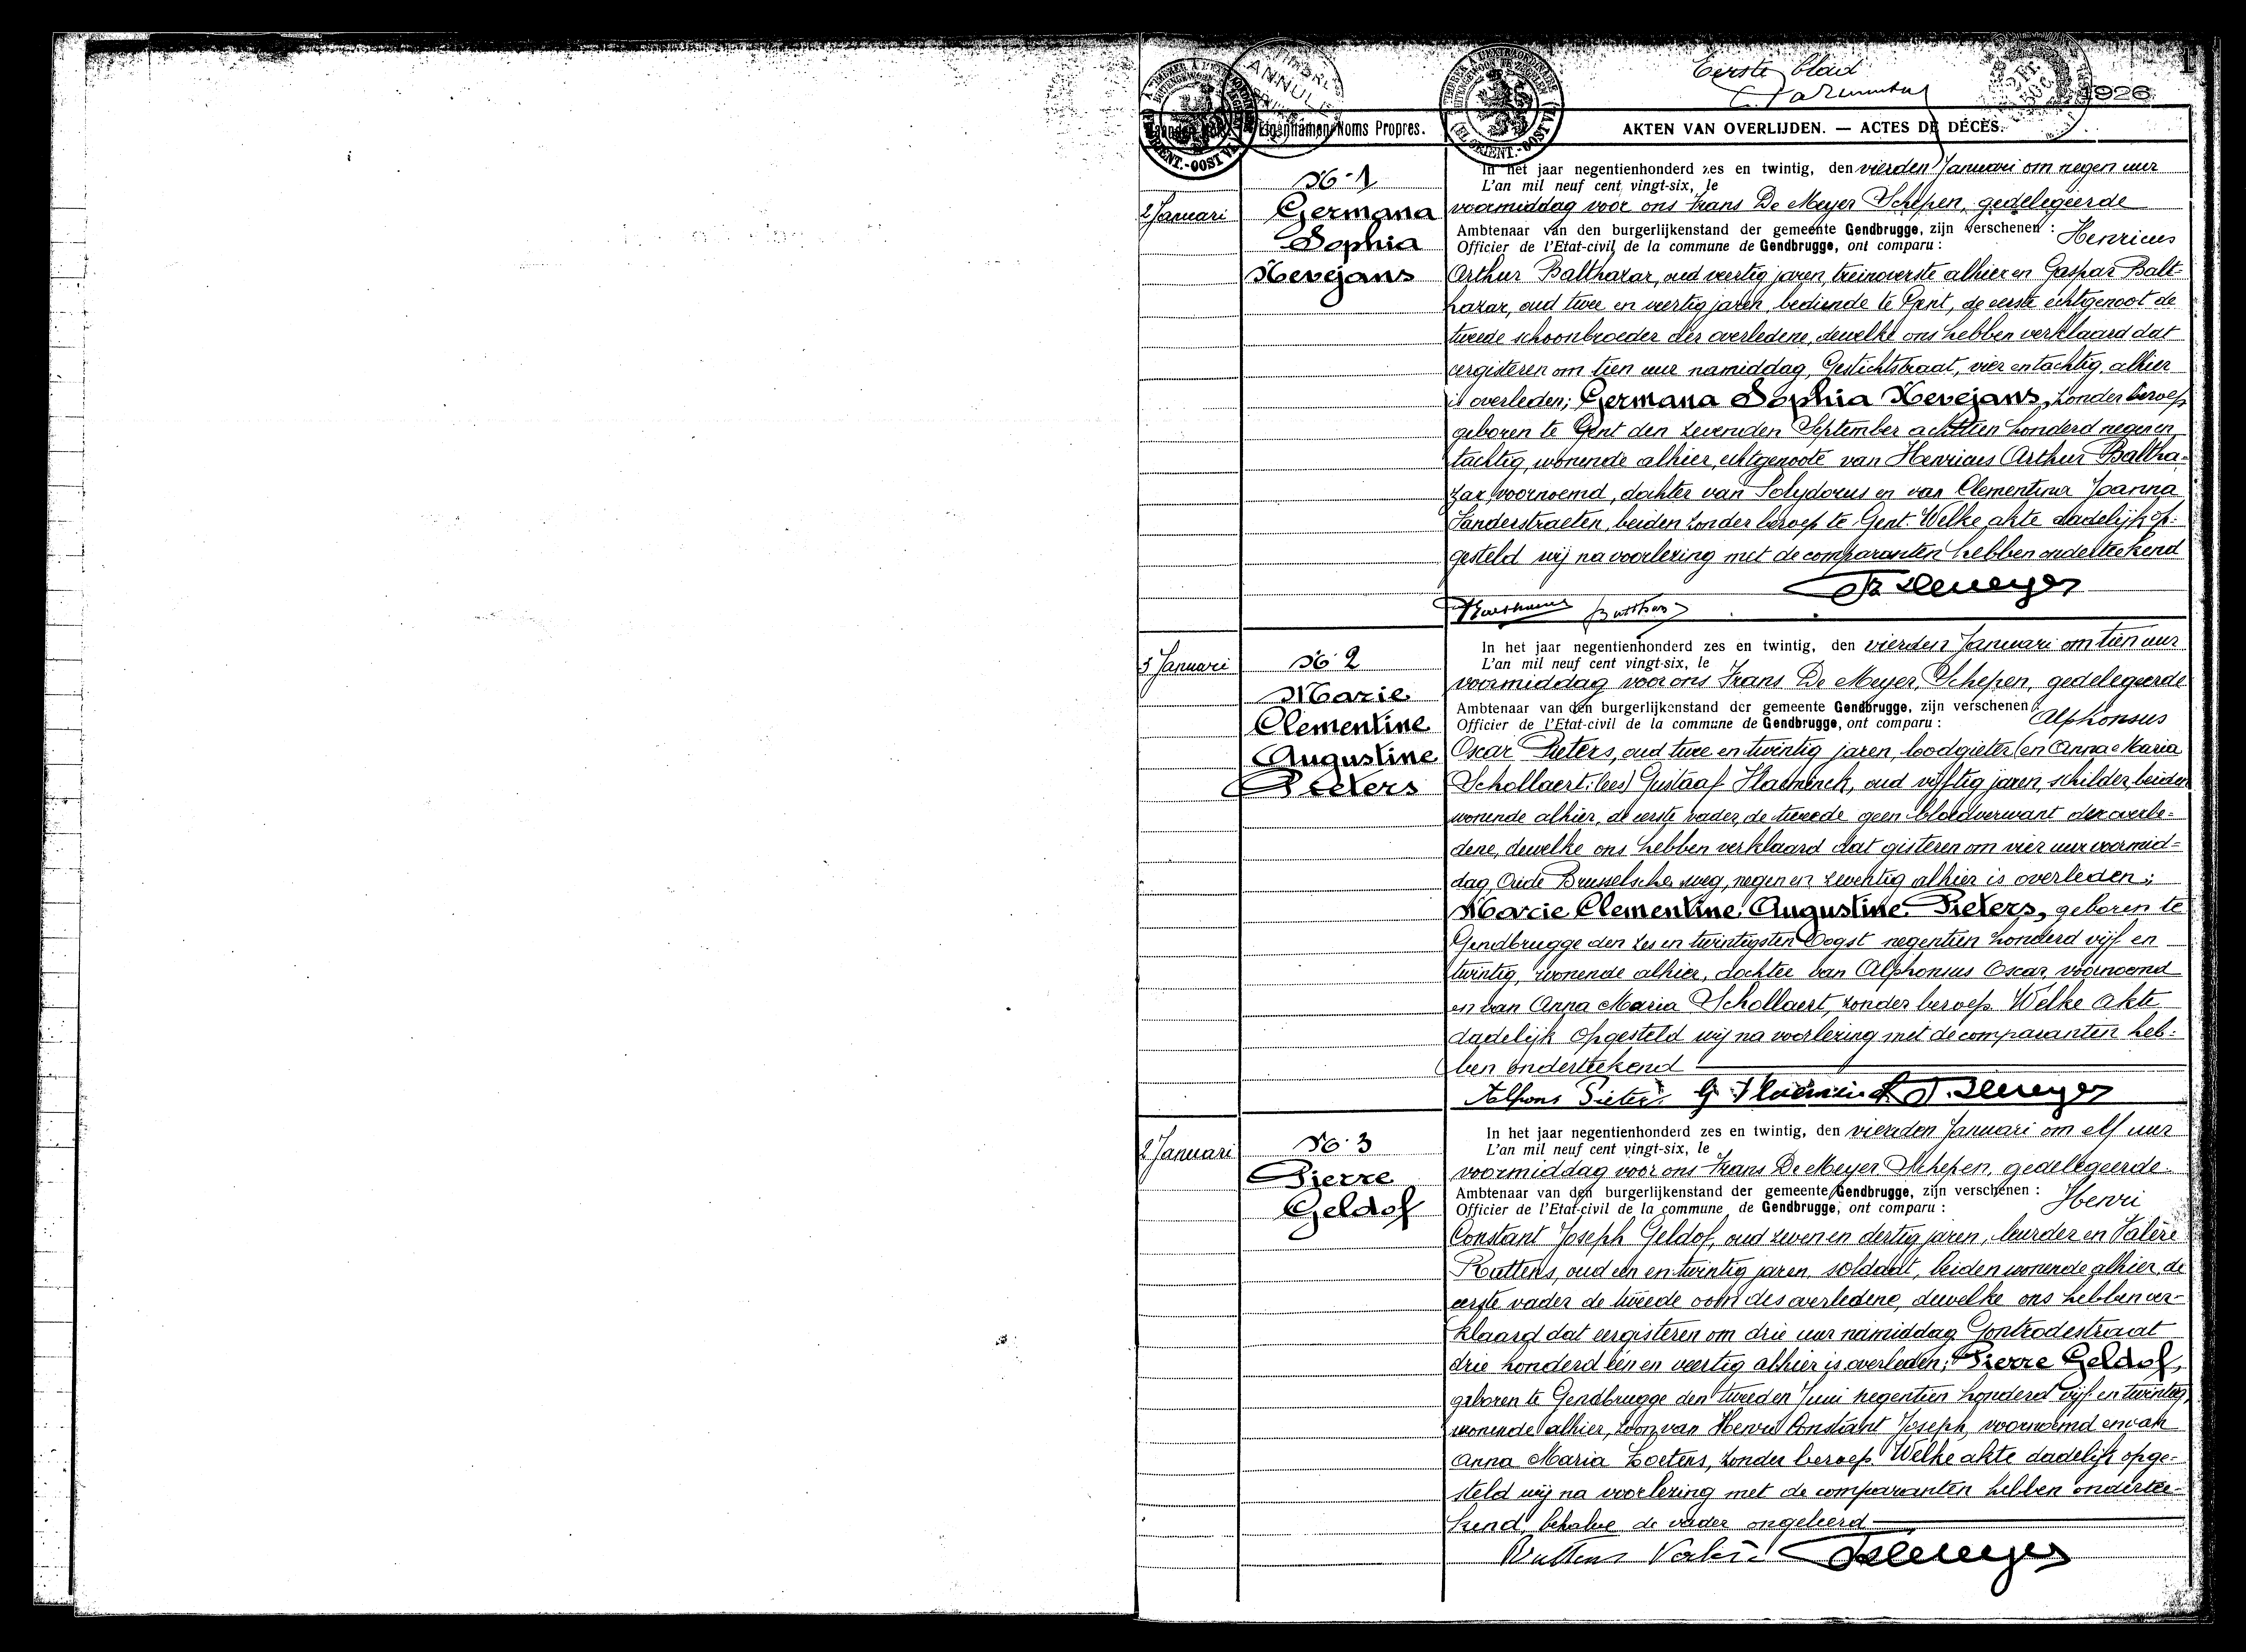 Eerste blad
1
1926
ANNULÉ
Eigennamen Noms Propres.
AKTEN VAN OVERLIJDEN. — ACTES DE DÉCÈS.
2 Januari
No 1
Germana
Sophia
Nevejans
In het jaar negentienhonderd zes en twintig, den vierden Januari om negen uur
L'an mil neuf cent vingt-six, le
voormiddag voor ons Frans De Meyer Schepen, gedelegeerde
Ambtenaar van den burgerlijkenstand der gemeente Gendbrugge, zijn verschenen : Henricus
Officier de l'Etat-civil de la commune de Gendbrugge, ont comparu :
Arthur Balthazar, oud veertig jaren, treinoverste alhier en Gaspar Balt-
hazar, oud twee en veertig jaren, bediende te Gent, de eerste echtgenoot de
tweede schoonbroeder der overledene, dewelke ons hebben verklaard dat
eergisteren om tien uur namiddag, Gestichtstraat, vier en tachtig, alhier
is overleden; Germana Sophia Nevejans, zonder beroep
geboren te Gent den zevenden September achttien honderd negen en
tachtig, wonende alhier, echtgenoote van Henricus Arthur Baltha-
zar, voornoemd, dochter van Polydorus en van Clementina Joanna
Vanderstraeten, beiden zonder beroep te Gent. Welke akte dadelijk op-
gesteld wij na voorlezing met de comparanten hebben onderteekend
3 Januari
No 2
Marie
Clementine
Augustine
Pieters
In het jaar negentienhonderd zes en twintig, den vierden Januari om tien uur
L'an mil neuf cent vingt-six, le
voormiddag voor ons Frans De Meyer, Schepen, gedelegeerde
Ambtenaar van den burgerlijkenstand der gemeente Gendbrugge, zijn verschenen : Alphonsus
Officier de l'Etat-civil de la commune de Gendbrugge, ont comparu :
Oscar Pieters, oud twee en twintig jaren, loodgieter (en Anna Maria
Schollaert: lees) Gustaaf Haeninck, oud vijftig jaren, schilder, beiden
wonende alhier, de eerste vader, de tweede geen bloedverwant der overle-
dene, dewelke ons hebben verklaard dat gisteren om vier uur voormid-
dag, Oude Brusselsche weg, negen en zeventig alhier is overleden;
Marie Clementine Augustine Pieters, geboren te
Gendbrugge den zes en twintigsten Oogst negentien honderd vijf en
twintig, wonende alhier, dochter van Alphonsus Oscar, voornoemd
en van Anna Maria Schollaert, zonder beroep. Welke akte
dadelijk opgesteld wij na voorlezing met de comparanten heb-
ben onderteekend
Alfons Pieters
2 Januari
No 3
Pierre
Geldof
In het jaar negentienhonderd zes en twintig, den vierden Januari om elf uur
L'an mil neuf cent vingt-six, le
voormiddag voor ons Frans De Meyer Schepen, gedelegeerde
Ambtenaar van den burgerlijkenstand der gemeente Gendbrugge, zijn verschenen : Henri
Officier de l'Etat-civil de la commune de Gendbrugge, ont comparu :
Constant Joseph Geldof, oud zeven en dertig jaren, leurder en Valère
Ruttens, oud een en twintig jaren, soldaat, beiden wonende alhier, de
eerste vader de tweede oom des overledene, dewelke ons hebben ver-
klaard dat eergisteren om drie uur namiddag Gontrodestraat
drie honderd één en veertig alhier is overleden; Pierre Geldof,
geboren te Gendbrugge den tweeden Juni negentien honderd vijf en twintig,
wonende alhier, zoon van Henri Constant Joseph, voornoemd en van
Anna Maria Zoetens, zonder beroep. Welke akte dadelijk opge-
steld wij na voorlezing met de comparanten hebben ondertee-
kend, behalve de vader ongeleerd